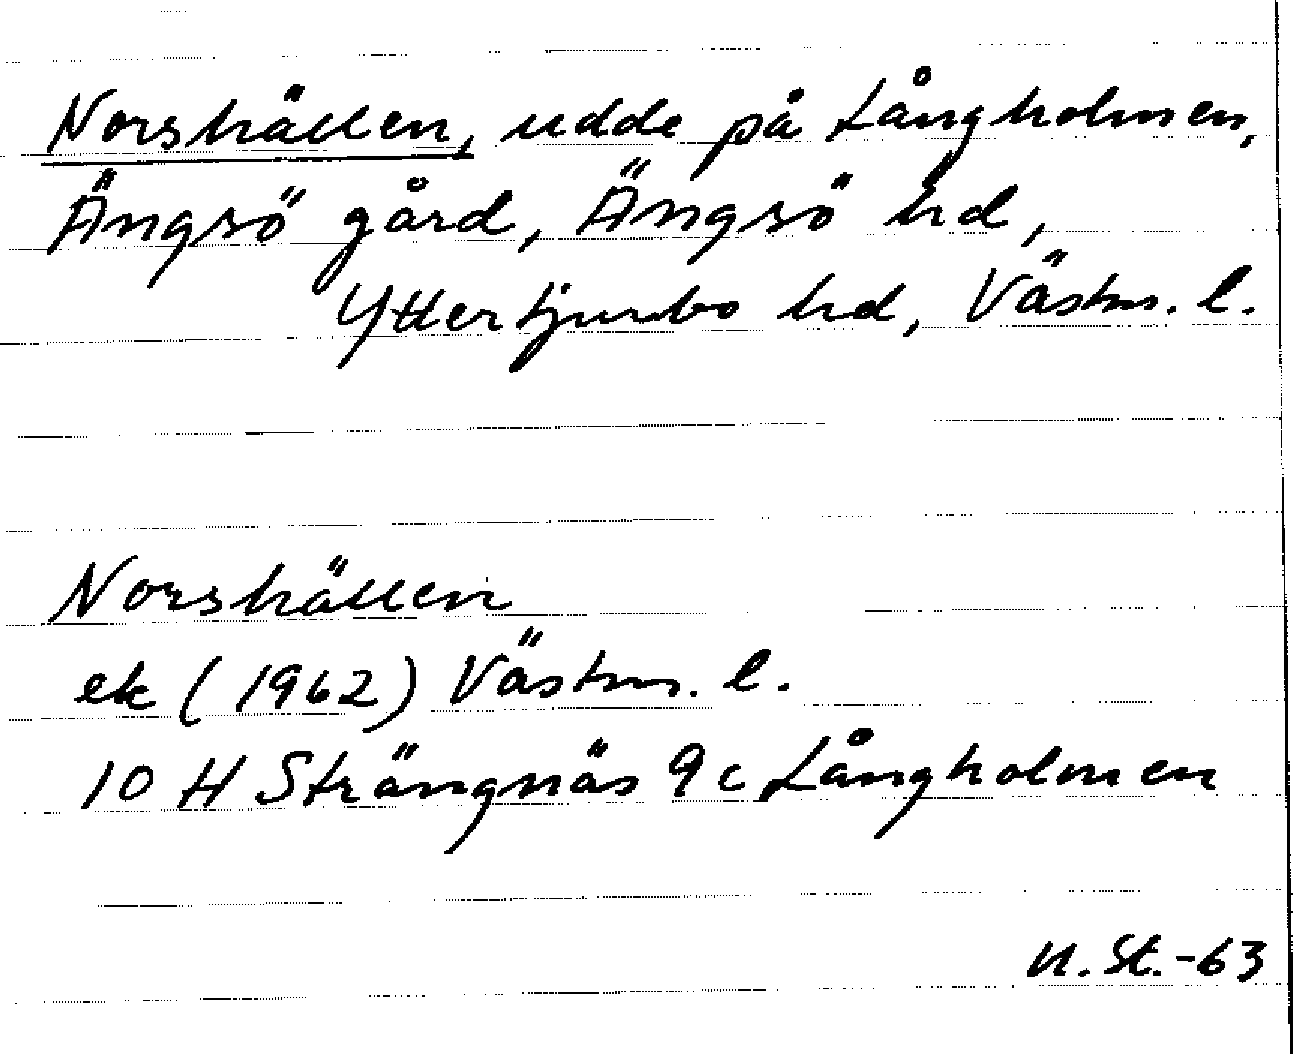 Norshällen, udde på Långholmen,
Ängsö gård, Ängsö hd,
Yttertjurbo hd, Västm. l.
Norshällen
ek (1962) Västm. l.
10 H Strängnäs 9c Långholmen
U. St. -63